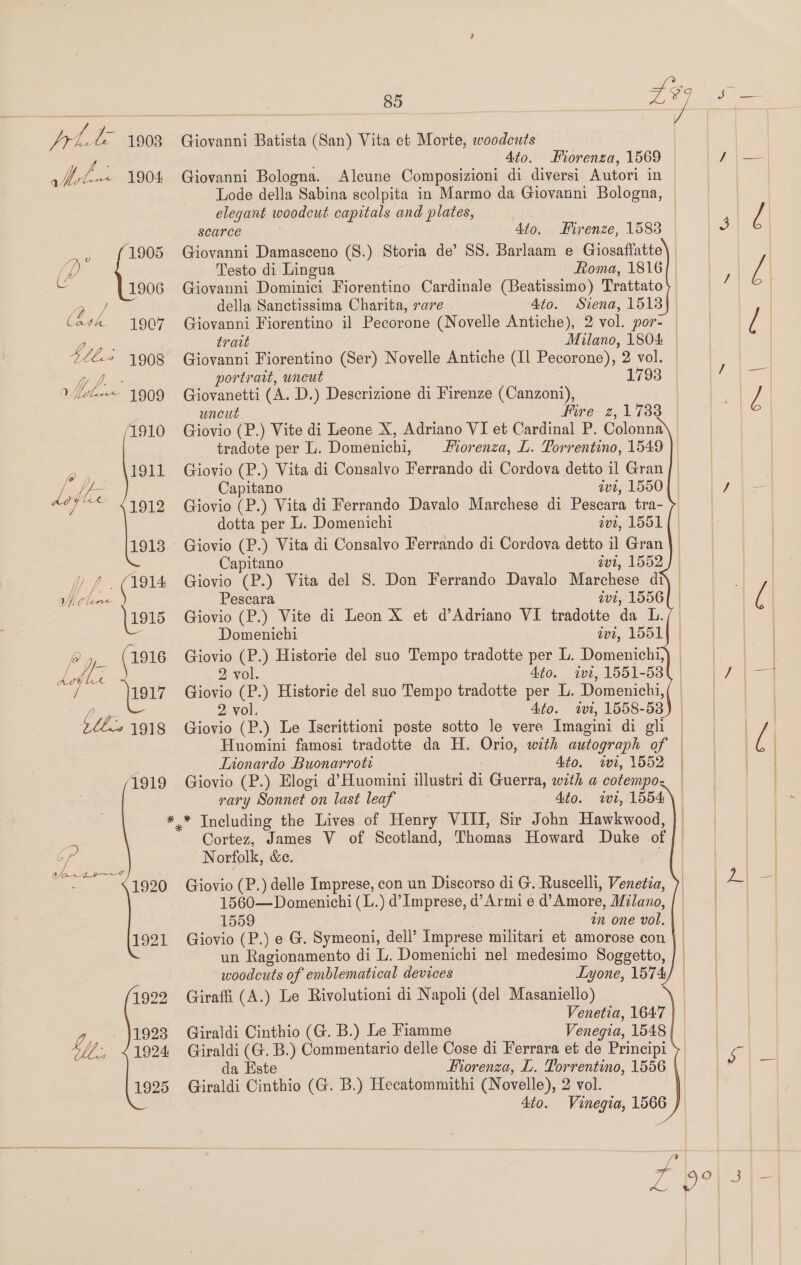 85 £89 5 —
1903 Giovanni Batista (San) Vita et Morte, woodcuts
4to. Fiorenza, 1569 1 —
1904 Giovanni Bologna. Alcune Composizioni di diversi Autori in
Lode della Sabina scolpita in Marmo da Giovanni Bologna,
elegant woodcut capitals and plates,
scarce 4to. Firenze, 1583 3 6
1905 Giovanni Damasceno (S.) Storia de' SS. Barlaam e Giosaffatte
Testo di Lingua Roma, 1816
1906 Giovanni Dominici Fiorentino Cardinale (Beatissimo) Trattato 1 6
della Sanctissima Charita, rare 4to. Siena, 1513
Cash 1907 Giovanni Fiorentino il Pecorone (Novelle Antiche), 2 vol. por-
trait Milano, 1804 6
1908 Giovanni Fiorentino (Ser) Novelle Antiche (Il Pecorone), 2 vol.
portrait, uncut 1793 1 —
1909 Giovanetti (A. D.) Descrizione di Firenze (Canzoni),
uncut Fire z, 1733 6
1910 Giovio (P.) Vite di Leone X, Adriano VI et Cardinal P. Colonna
tradote per L. Domenichi, Fiorenza, L. Torrentino, 1549
1911 Giovio (P.) Vita di Consalvo Ferrando di Cordova detto il Gran
Capitano ivi, 1550 1 —
1912 Giovio (P.) Vita di Ferrando Davalo Marchese di Pescara tra-
dotta per L. Domenichi ivi, 1551
1913 Giovio (P.) Vita di Consalvo Ferrando di Cordova detto il Gran
Capitano ivi, 1552
1914 Giovio (P.) Vita del S. Don Ferrando Davalo Marchese di
Pescara ivi, 1556 6
1915 Giovio (P.) Vite di Leon X et d'Adriano VI tradotte da L.
Domenichi ivi, 1551
1916 Giovio (P.) Historie del suo Tempo tradotte per L. Domenichi,
2 vol. 4to. ivi, 1551-53 1 —
1917 Giovio (P.) Historie del suo Tempo tradotte per L. Domenichi,
2 vol. 4to. ivi, 1558-53
1918 Giovio (P.) Le Iscrittioni poste sotto le vere Imagini di gli
Huomini famosi tradotte da H. Orio, with autograph of 6
Lionardo Buonarroti 4to. ivi, 1552
1919 Giovio (P.) Elogi d'Huomini illustri di Guerra, with a cotempo-
rary Sonnet on last leaf 4to. ivi, 1554
*** Including the Lives of Henry VIII, Sir John Hawkwood,
Cortez, James V of Scotland, Thomas Howard Duke of
Norfolk, &c.
1920 Giovio (P.) delle Imprese, con un Discorso di G. Ruscelli, Venetia, 2 —
1560—Domenichi (L.) d'Imprese, d'Armi e d'Amore, Milano,
1559 in one vol.
1921 Giovio (P.) e G. Symeoni, dell' Imprese militari et amorose con
un Ragionamento di L. Domenichi nel medesimo Soggetto,
woodcuts of emblematical devices Lyone, 1574
1922 Giraffi (A.) Le Rivolutioni di Napoli (del Masaniello)
Venetia, 1647
1923 Giraldi Cinthio (G. B.) Le Fiamme Venegia, 1548
1924 Giraldi (G. B.) Commentario delle Cose di Ferrara et de Principi 5 —
da Este Fiorenza, L. Torrentino, 1556
1925 Giraldi Cinthio (G. B.) Hecatommithi (Novelle), 2 vol.
4to. Vinegia, 1566
£ 90 3 —